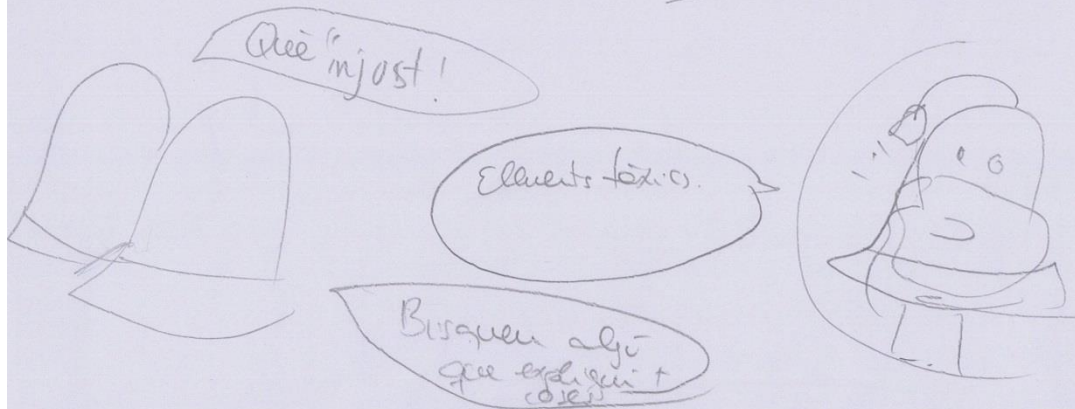 Què injust!
Elements tòxics.
Busquem algú
que expliqui +
coses